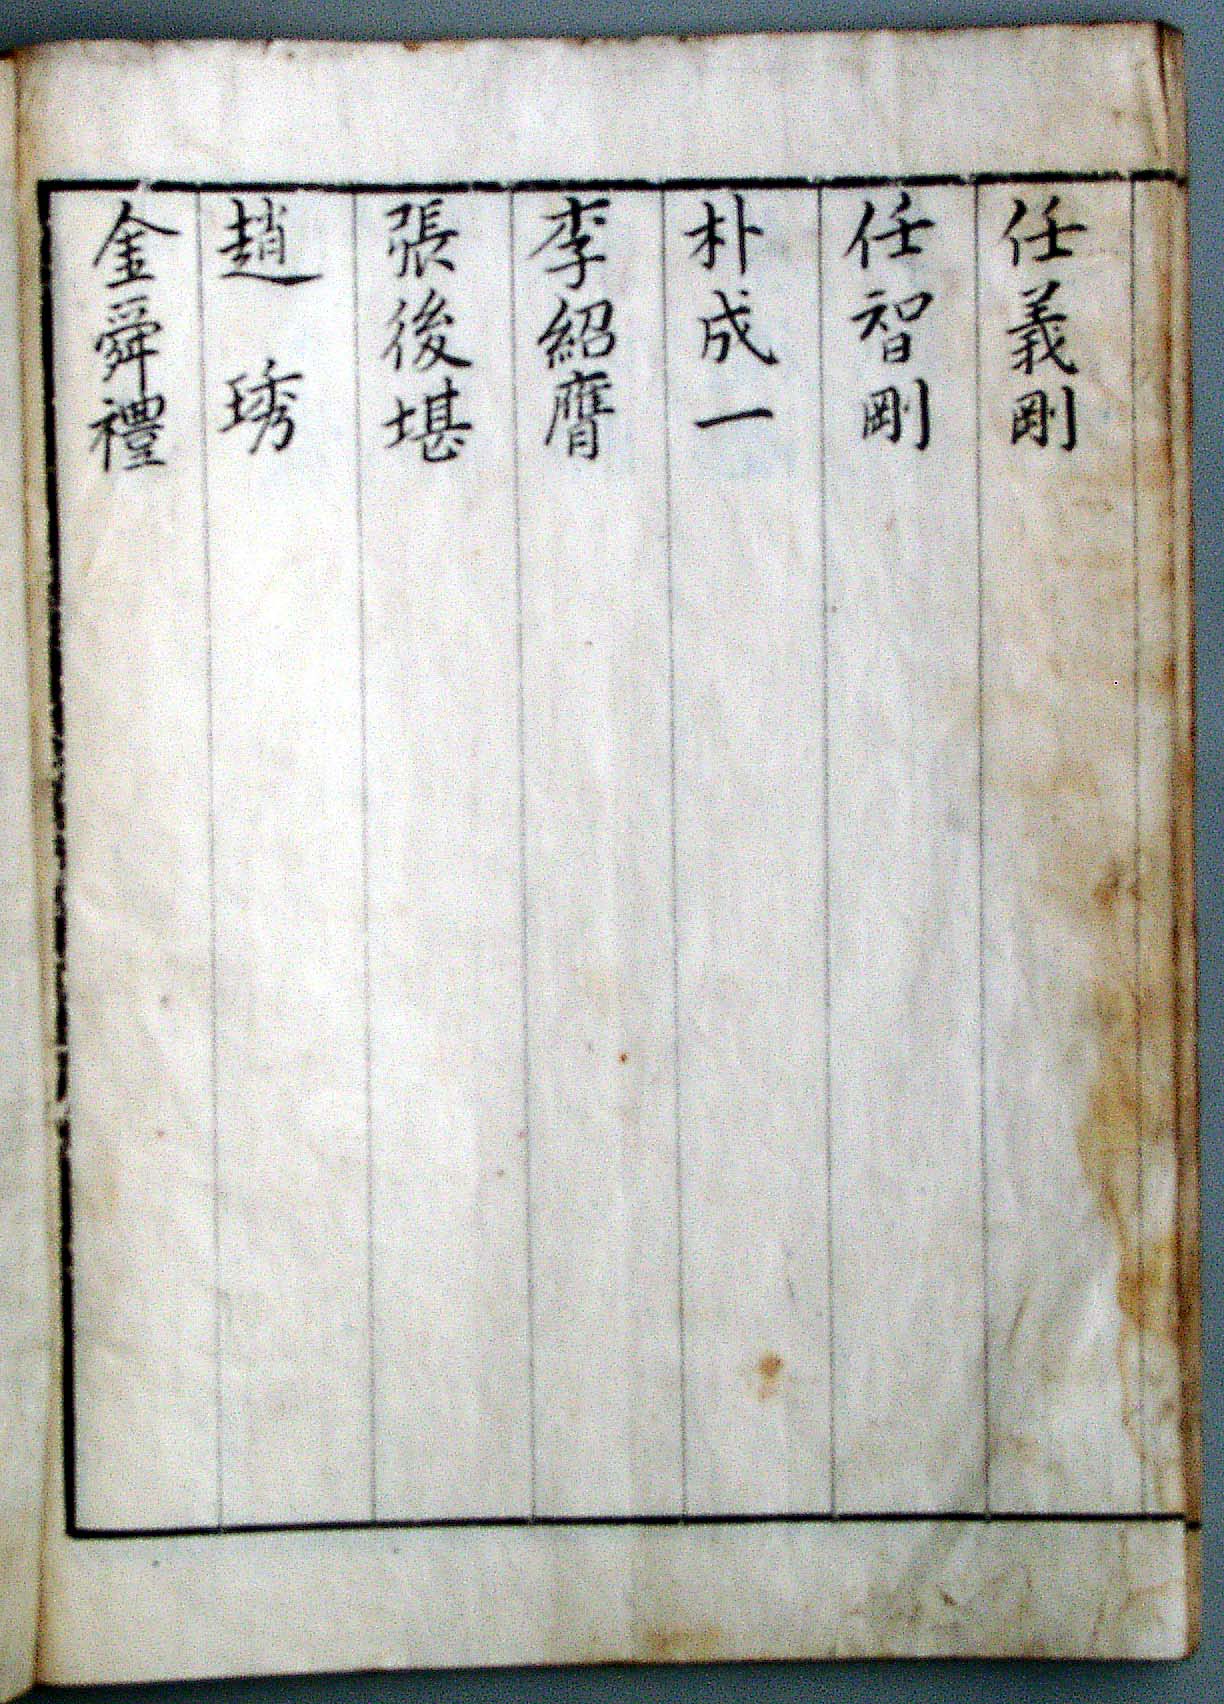 任義剛
任智剛
朴成一
李紹膺
張後堪
趙琇
金舜禮